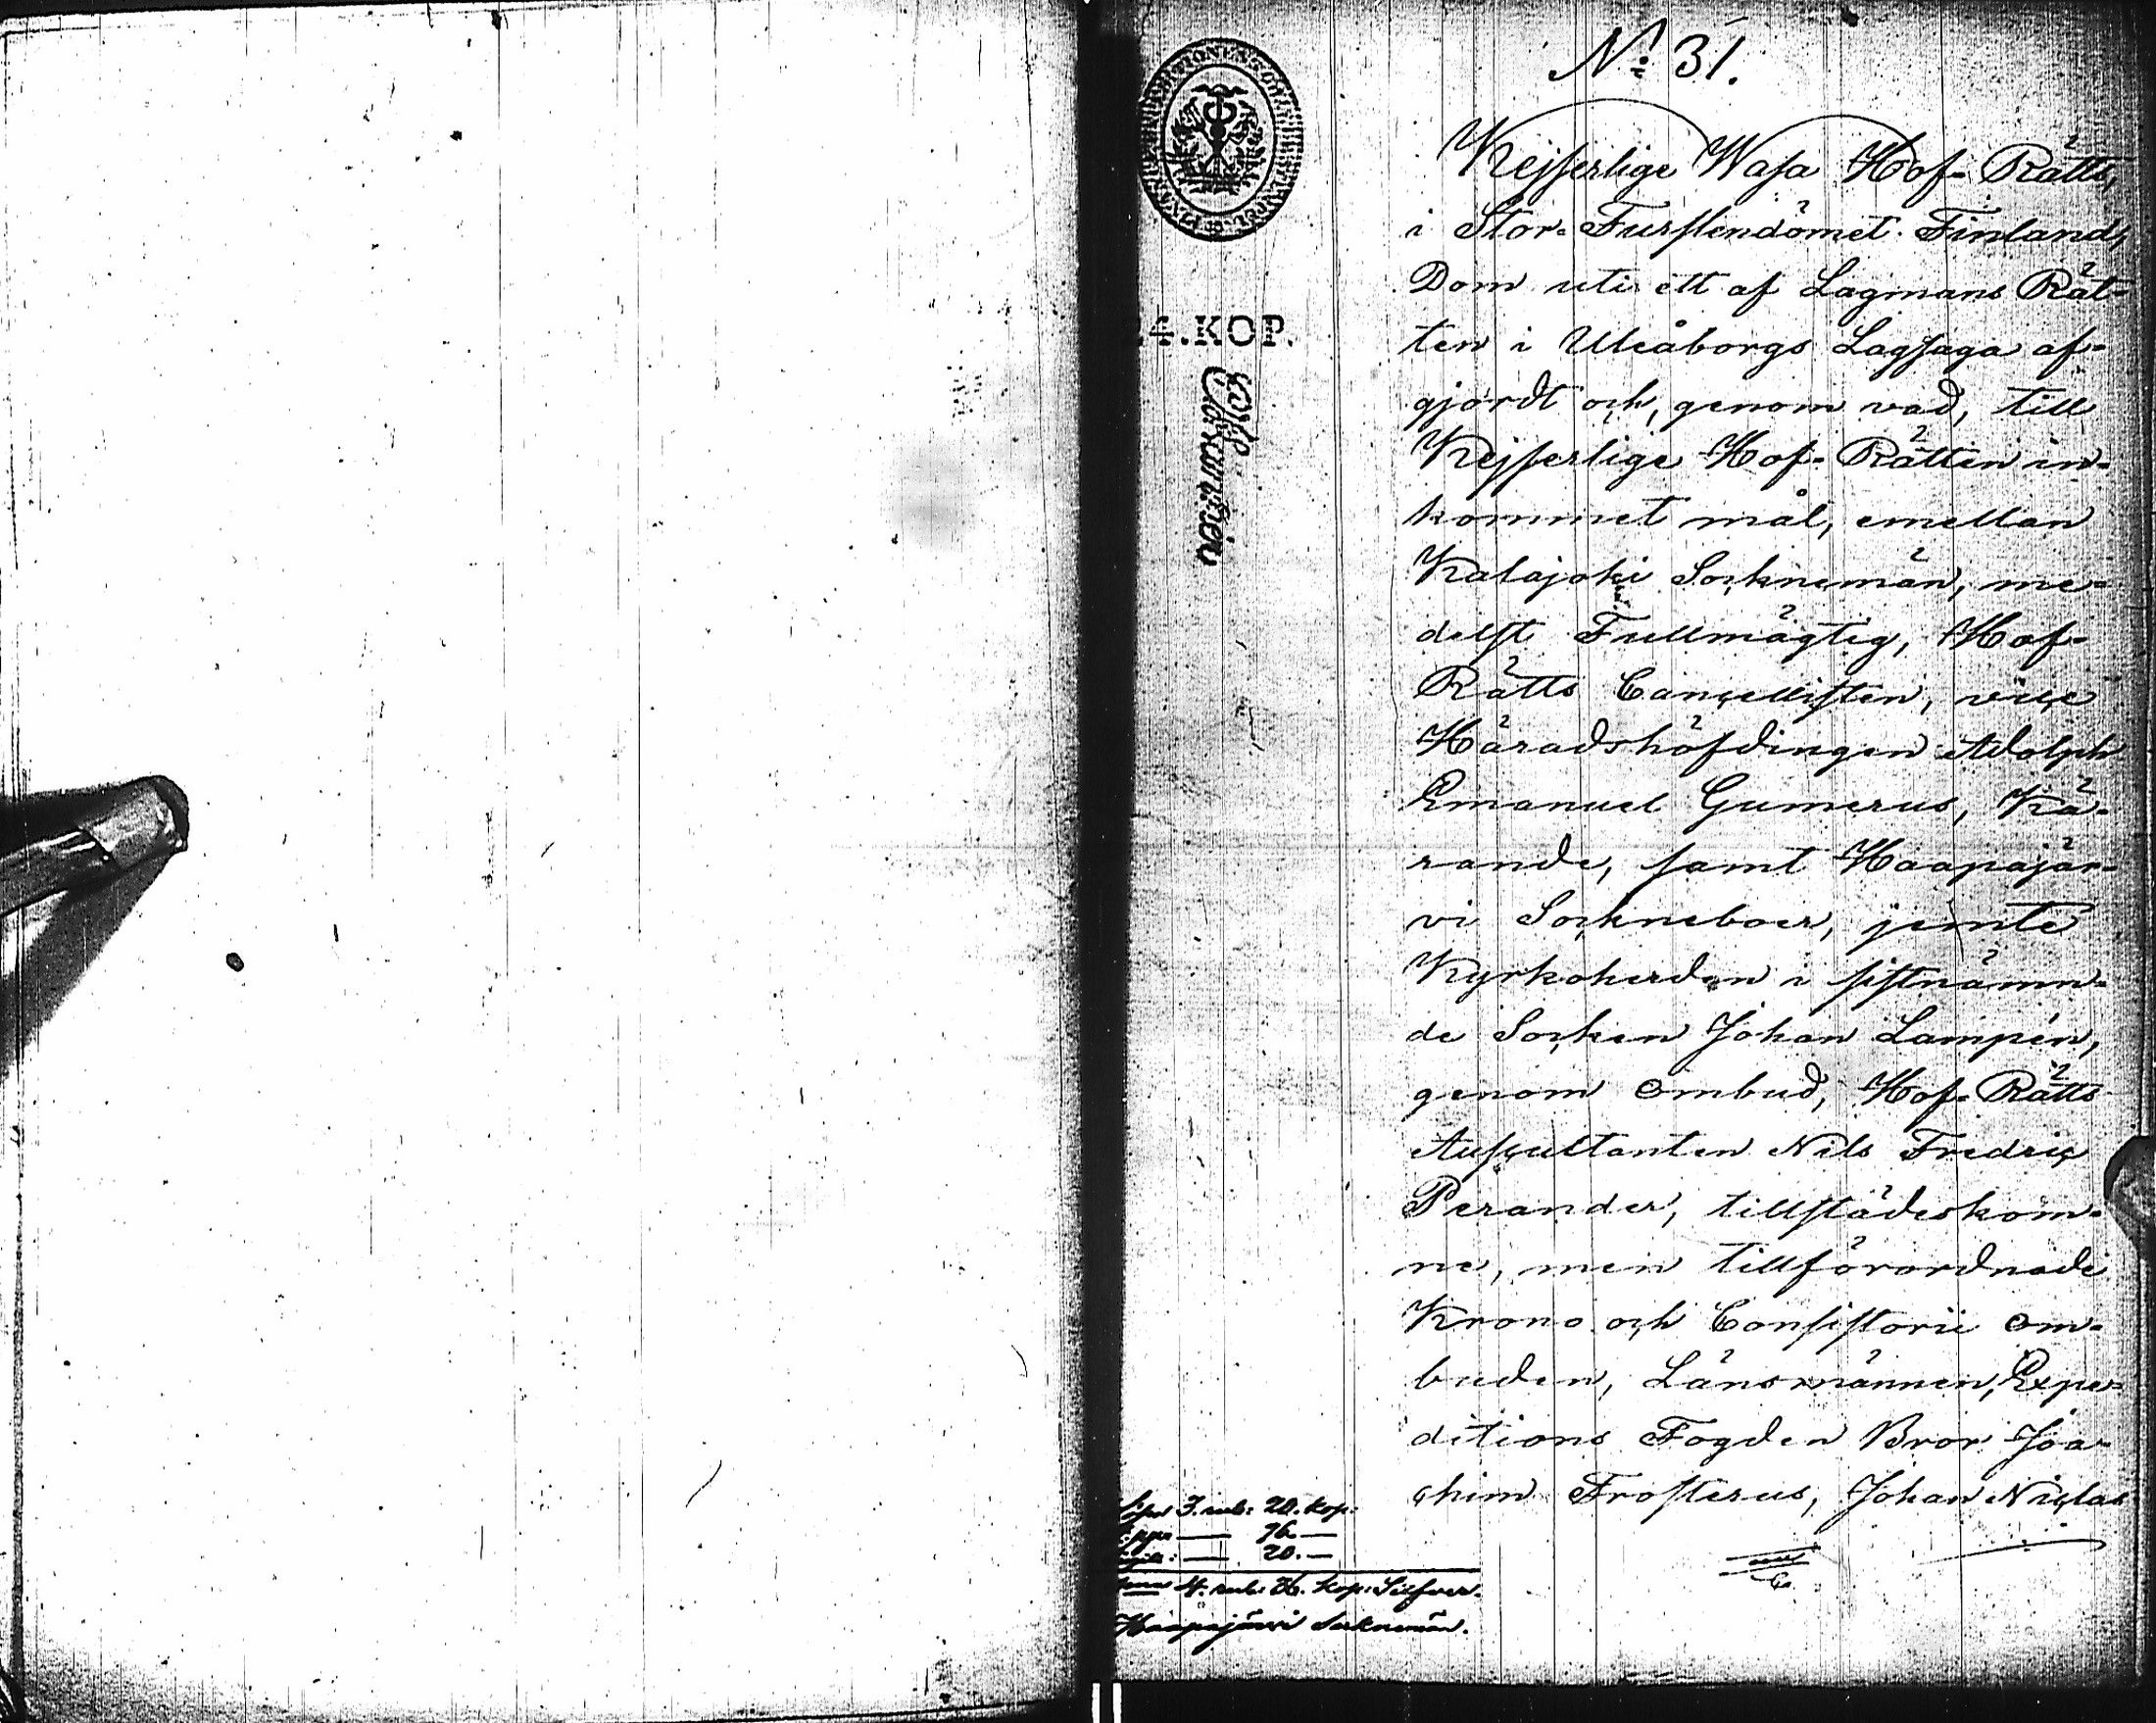 No 31.
Kejserlige Wasa Hof-Rätts,
i Stor-Furstendömet Finland,
Dom uti ett af Lagmans Rät-
ten i Uleåborgs Lagsaga af-
gjordt och, genom vad, till
Kejserlige Hof-Rätten in-
kommet mål, emellan
Kalajoki Socknemän, me-
delst Fullmägtig, Hof-
Rätts Cancellisten, vice
Häradshöfdingen Adolph
Emanuel Gumerus, Kä-
rande, samt Haapajär-
vi Sockneboer, jemte
Kyrkoherden i sistnämn-
de Socken Johan Lampén,
genom ombud, Hof-Rätts
Auscultanten Nils Fredric
Perander, tillstädeskom-
ne, men tillförordnade
Krono och Consistorii om-
buden, Länsmännen, Expe-
ditions Fogden Bror Joa-
chim Frosterus, Johan Niclas
24.KOP.
3. rub: 20. kop:
96 —
20. —
4. rub: 36. kop: Silfver.
Haapajärvi Socknemän.